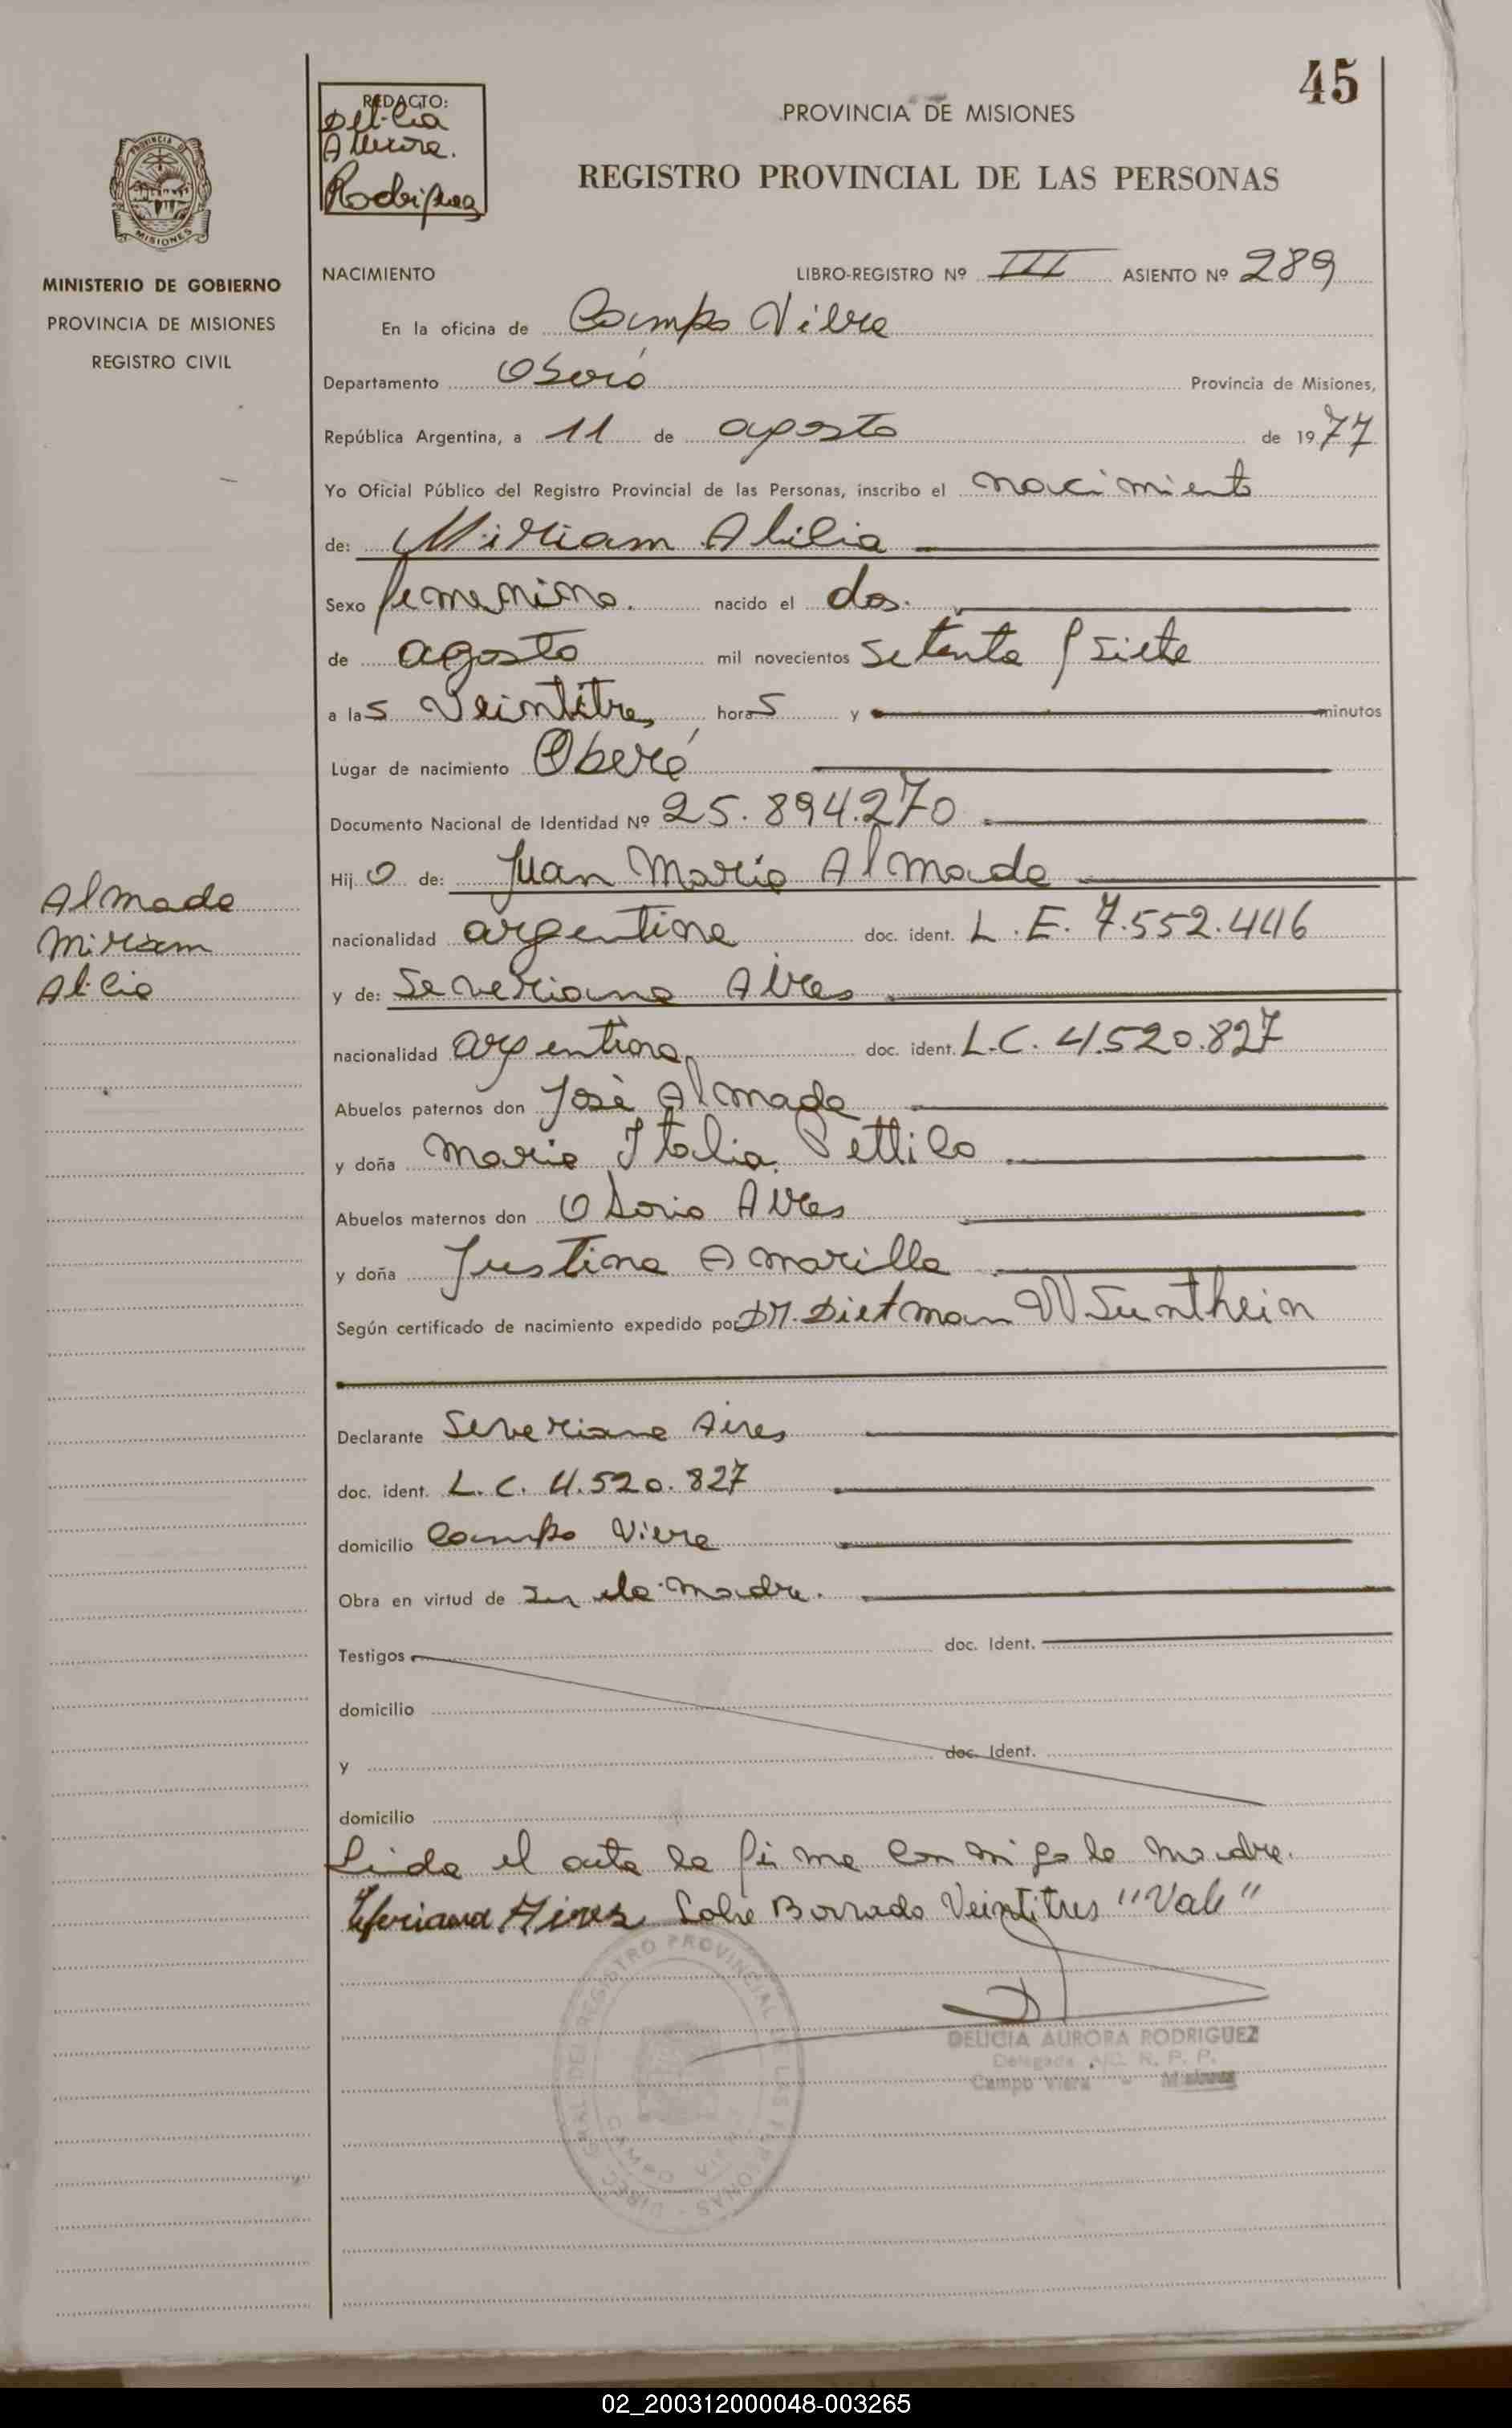 45
REDACTO:
Delicia
Aurora.
Rodriguez
PROVINCIA DE MISIONES
REGISTRO PROVINCIAL DE LAS PERSONAS
MISIONES
MINISTERIO DE GOBIERNO
PROVINCIA DE MISIONES
REGISTRO CIVIL
NACIMIENTO LIBRO-REGISTRO Nº III ASIENTO Nº 289
En la oficina de Campo Viera
Departamento Oberá Provincia de Misiones,
República Argentina, a 11 de agosto de 1977
Yo Oficial Público del Registro Provincial de las Personas, inscribo el nacimiento
de: Miriam Alicia
Sexo femenino. nacido el dos.
de agosto mil novecientos setenta y siete
a las Veintitres horas y minutos
Lugar de nacimiento Oberá
Documento Nacional de Identidad Nº 25.894.270
Hijo de: Juan Mario Almada
Almada
Miriam
Alicia
nacionalidad argentina doc. ident. L.E. 7.552.446
y de: Severiana Aires
nacionalidad argentina doc. ident. L.C. 4.520.827
Abuelos paternos don José Almada
y doña Maria Italia
Abuelos maternos don Aires
y doña Justina Amarilla
Según certificado de nacimiento expedido por Dr. Dietman W Sunthein
Declarante Severiana Aires
doc. ident. L.C. 4.520.827
domicilio Campo Viera
Obra en virtud de la madre.
Testigos doc. Ident.
domicilio
y doc. Ident.
domicilio
Leida el acta la firma conmigo la madre.
Aires Sobre Borrado Veintitres "Vale"
DELICIA AURORA RODRIGUEZ
Delegada R. P. P.
Campo Viera - Misiones
02_200312000048-003265